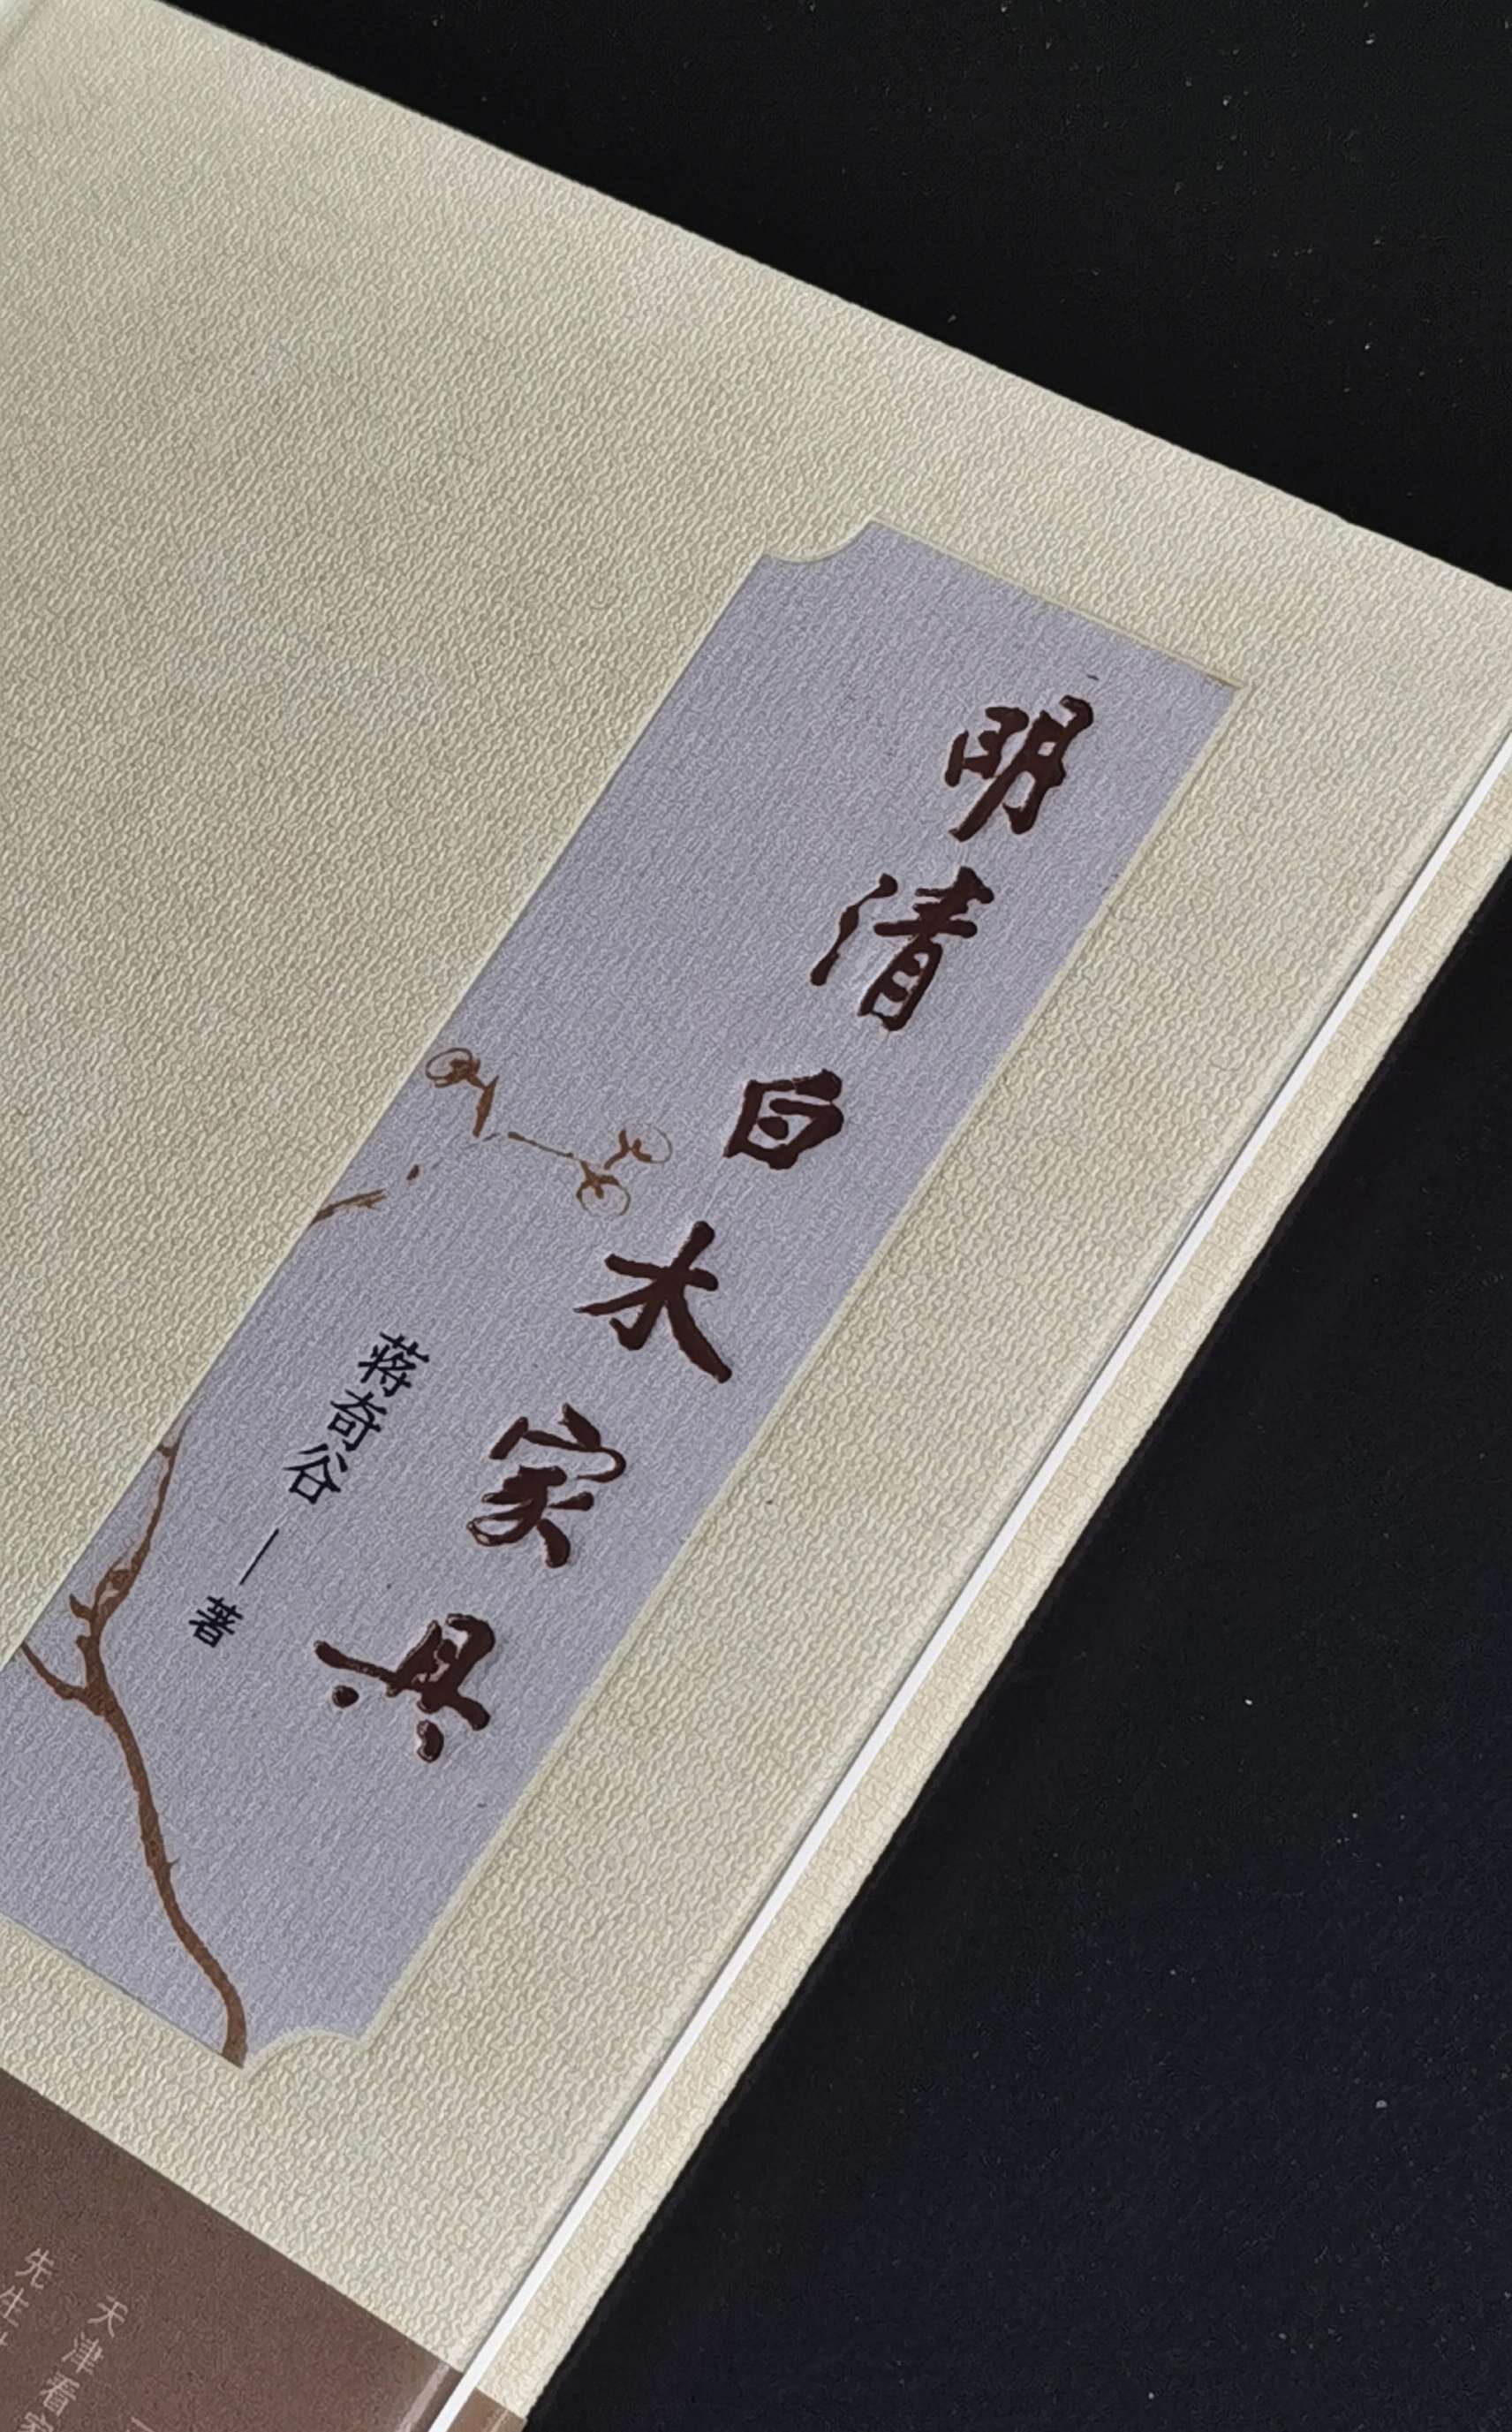 明清白木家具
蒋奇谷—著
天津看家
先生